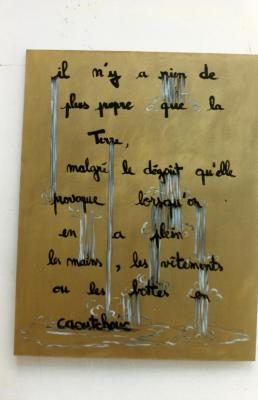 il n'y a rien de
plus propre que la
Terre,
malgré le dégoût qu'elle
provoque lorsqu'on
en a plein
les mains, les vêtements
ou les bottes en
caoutchouc